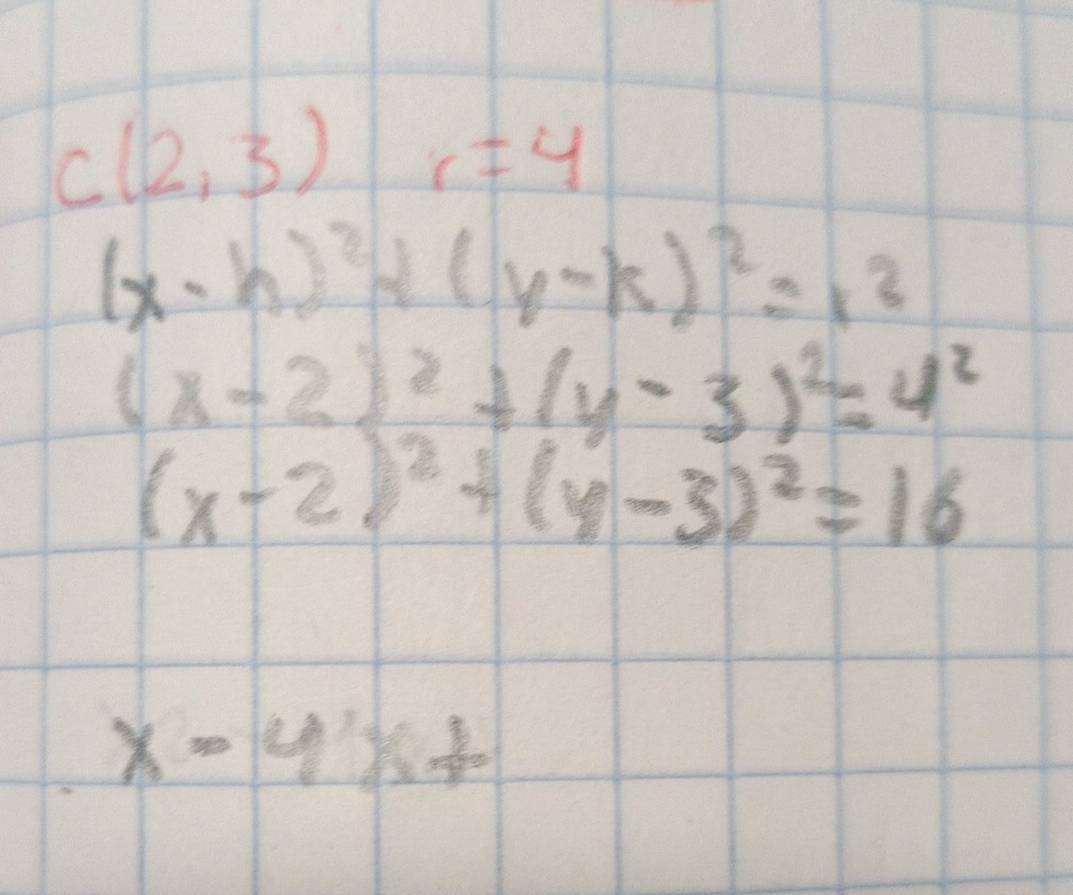 C(2,3) r=4
(x-h)²+(y-k)²=r²
(x-2)²+(y-3)²=4²
(x-2)²+(y-3)²=16
x-4x+